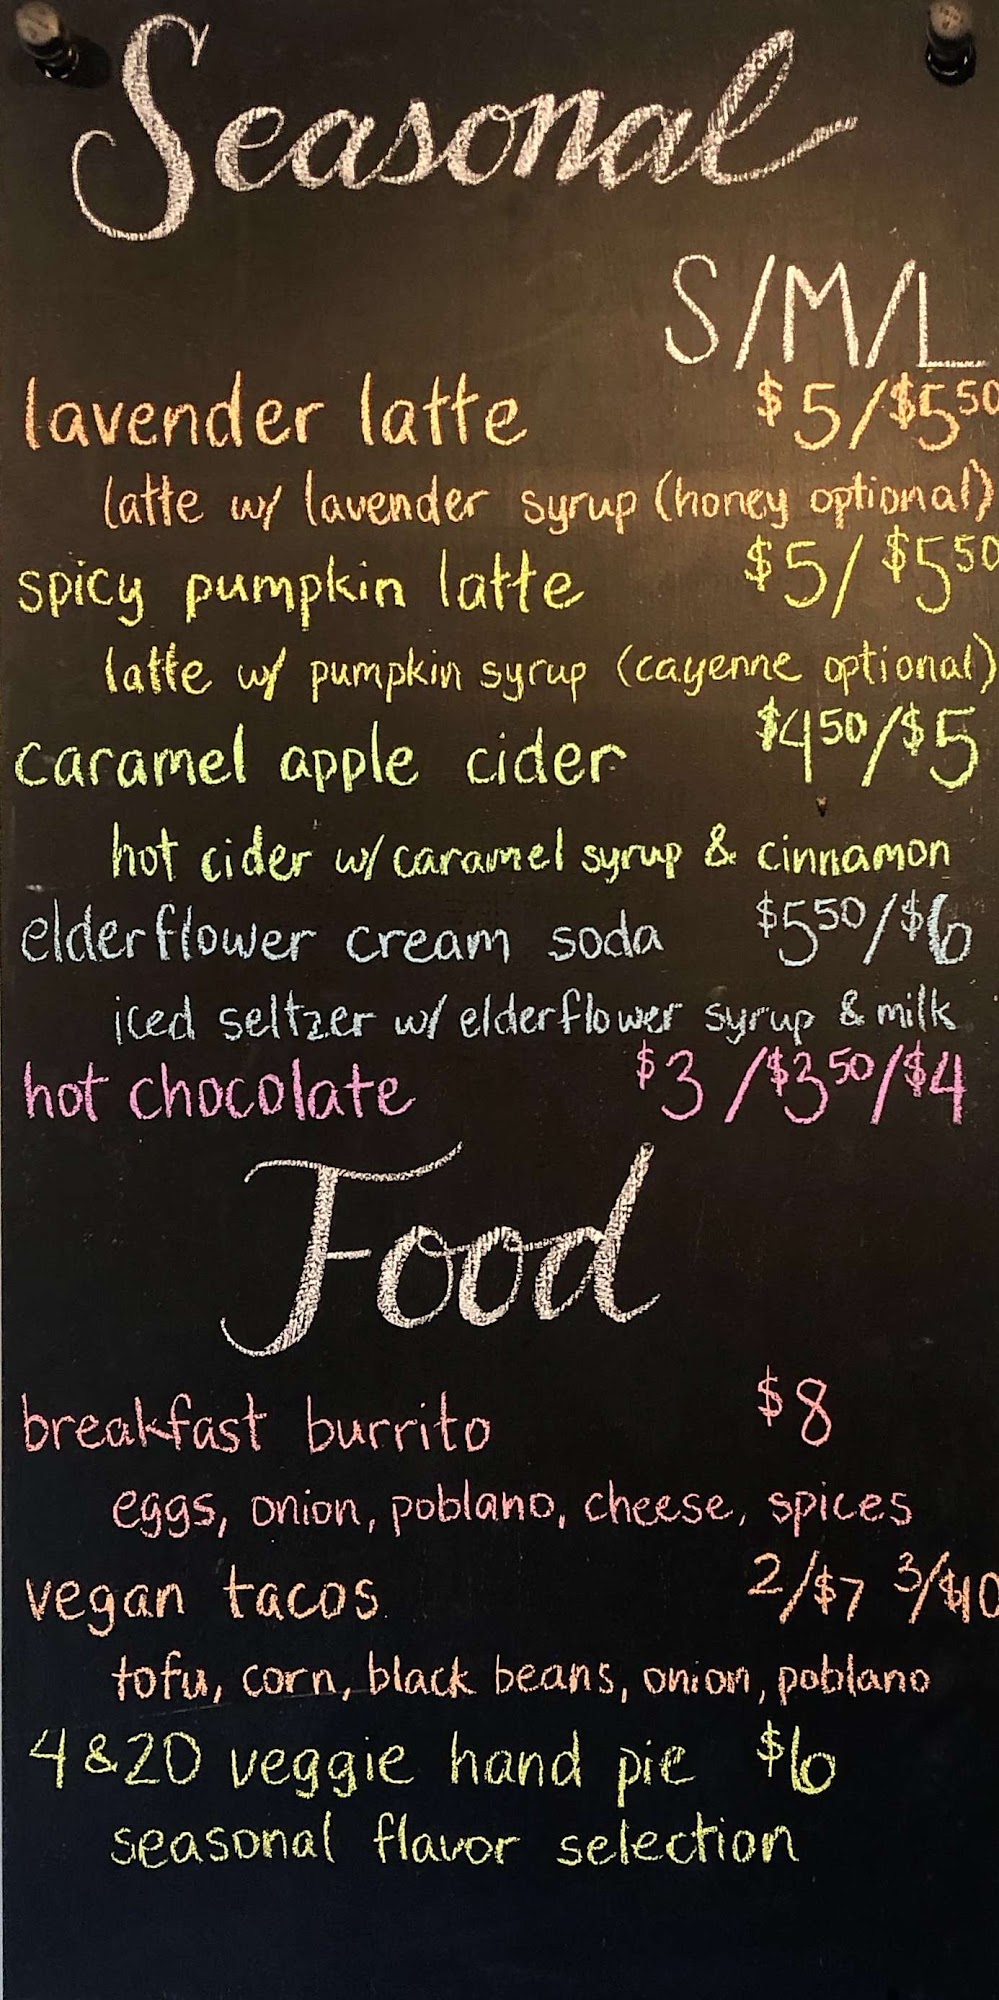 Seasonal
S/M/L
lavender latte $5/$5.50
latte w/ lavender syrup (honey optional)
spicy pumpkin latte $5/$5.50
latte w/ pumpkin syrup (cayenne optional)
caramel apple cider $4.50/$5
hot cider w/ caramel syrup & cinnamon
elderflower cream soda $5.50/$6
iced seltzer w/ elderflower syrup & milk
hot chocolate $3/$3.50/$4
Food
breakfast burrito $8
eggs, onion, poblano, cheese, spices
vegan tacos 2/$7 3/$10
tofu, corn, black beans, onion, poblano
4&20 veggie hand pie $6
seasonal flavor selection